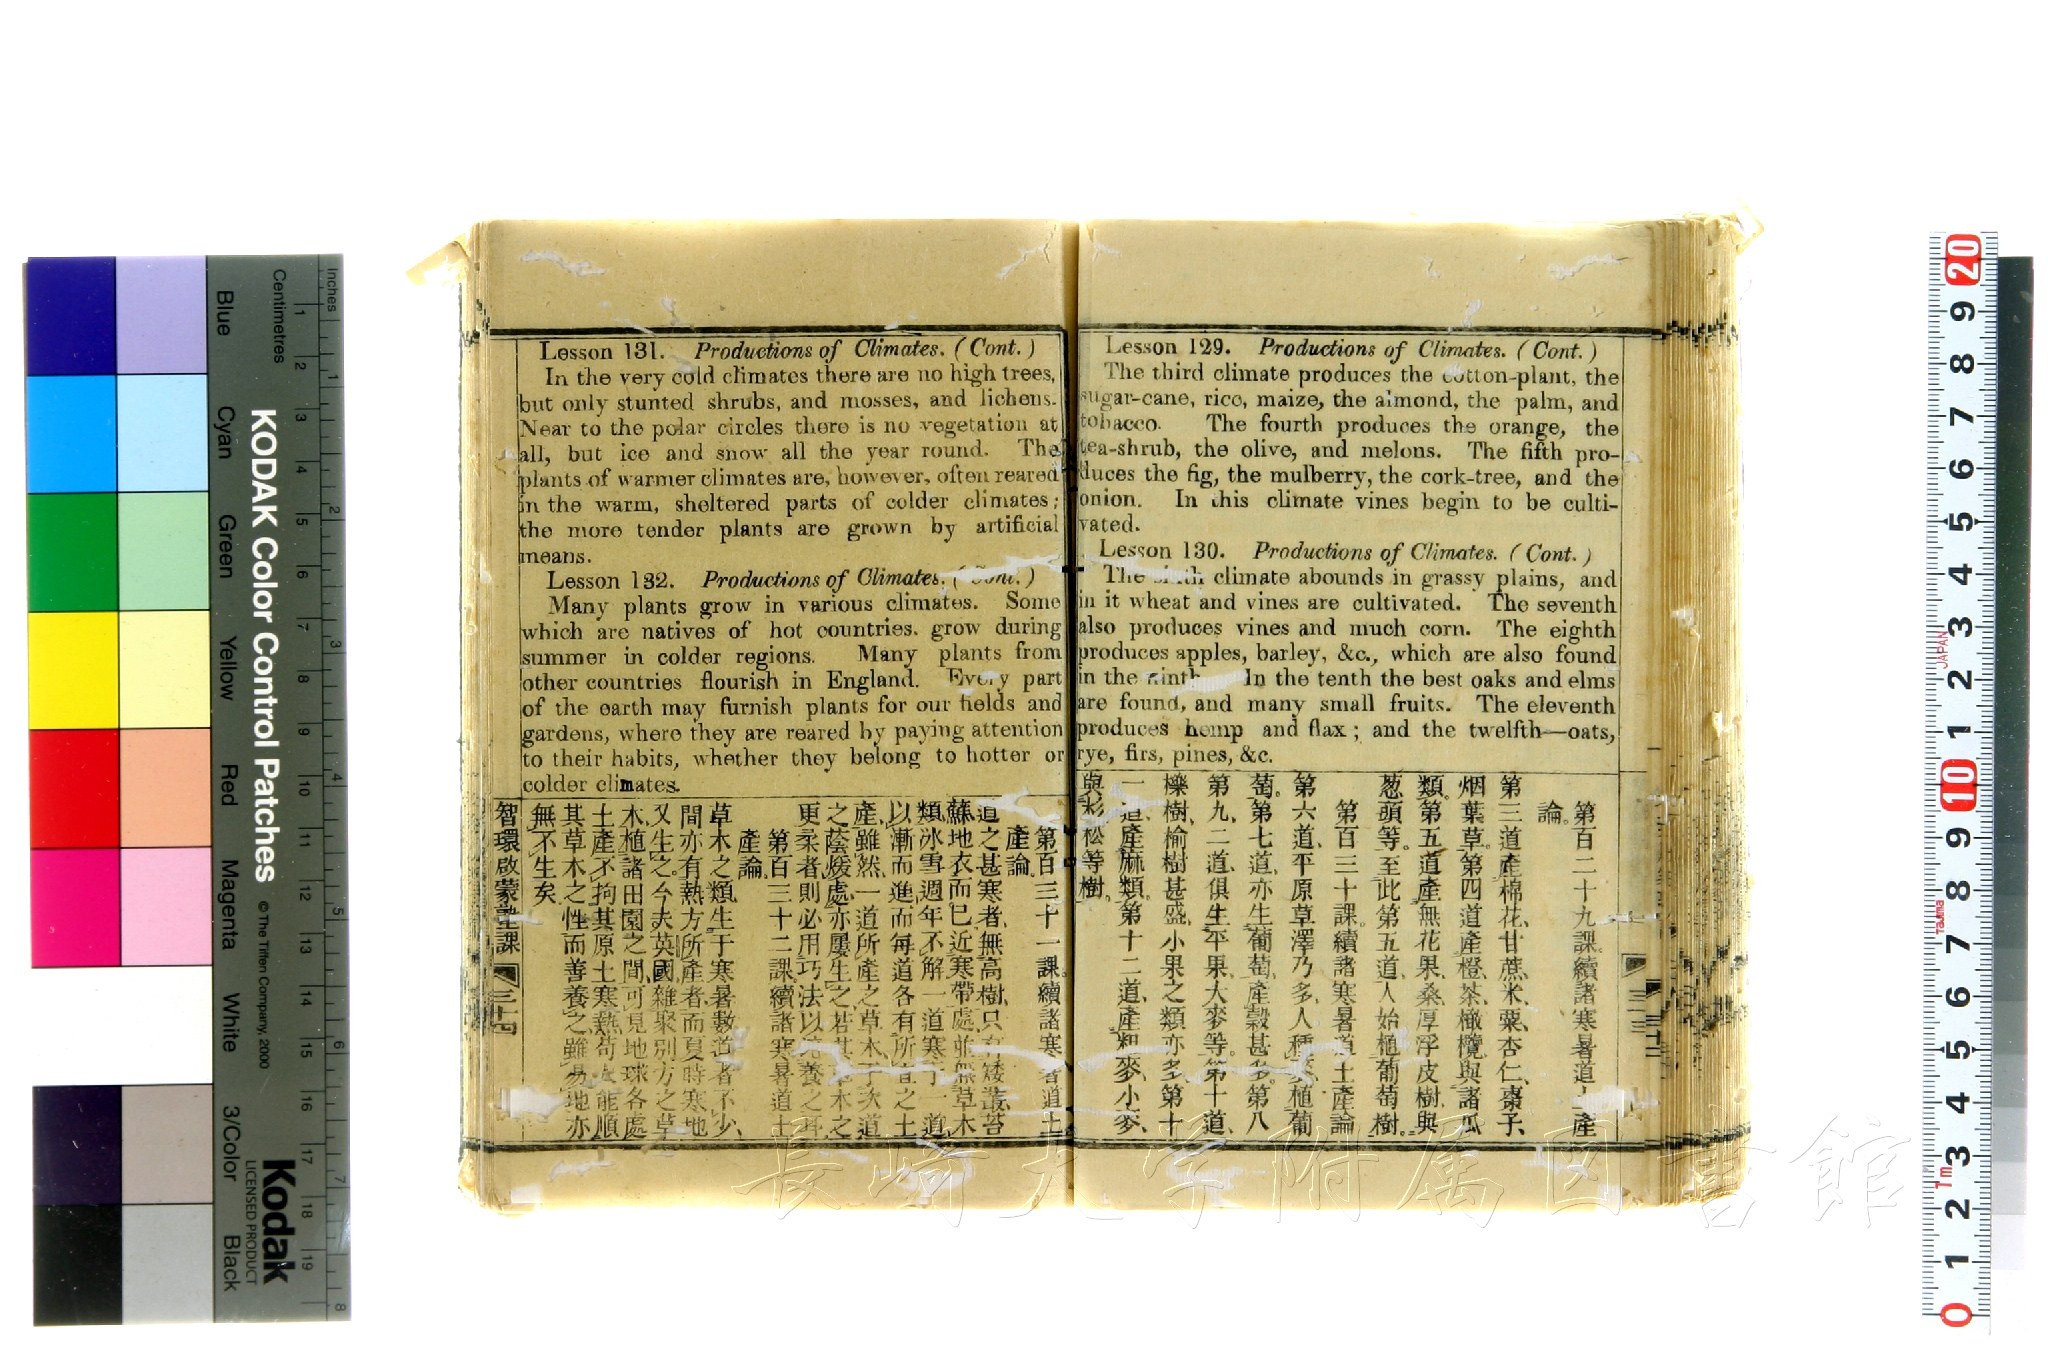 Lesson 129. Productions of Climates. (Cont.)
The third climate produces the cotton-plant, the
sugar-cane, rice, maize, the almond, the palm, and
tobacco. The fourth produces the orange, the
tea-shrub, the olive, and melons. The fifth pro-
duces the fig, the mulberry, the cork-tree, and the
onion. In this climate vines begin to be culti-
vated.
Lesson 130. Productions of Climates. (Cont.)
The sixth climate abounds in grassy plains, and
in it wheat and vines are cultivated. The seventh
also produces vines and much corn. The eighth
produces apples, barley, &c., which are also found
in the ninth. In the tenth the best oaks and elms
are found, and many small fruits. The eleventh
produces hemp and flax; and the twelfth—oats,
rye, firs, pines, &c.
第百二十九課續諸寒暑道土產
論。
第三道產棉花、甘蔗、米、粟、杏仁、棗子、
烟葉草。第四道產橙、茶、橄欖、與諸瓜
類。第五道產無花果、桑、厚浮皮樹、與
葱頭等。至此第五道、人始種葡萄樹。
第百三十課續諸寒暑道土產論
第六道、平原草澤乃多、人種麥植葡
萄。第七道、亦生葡萄、產穀甚多。第八
第九、二道、俱生平果、大麥等。第十道、
櫟樹、榆樹甚盛、小果之類亦多。第十
一道、產麻類。第十二道、產粗麥、小麥、
與杉松等樹。
Lesson 131. Productions of Climates. (Cont.)
In the very cold climates there are no high trees,
but only stunted shrubs, and mosses, and lichens.
Near to the polar circles there is no vegetation at
all, but ice and snow all the year round. The
plants of warmer climates are, however, often reared
in the warm, sheltered parts of colder climates;
the more tender plants are grown by artificial
means.
Lesson 132. Productions of Climates. (Cont.)
Many plants grow in various climates. Some
which are natives of hot countries, grow during
summer in colder regions. Many plants from
other countries flourish in England. Every part
of the earth may furnish plants for our fields and
gardens, where they are reared by paying attention
to their habits, whether they belong to hotter or
colder climates.
第百三十一課續諸寒暑道土
產論。
道之甚寒者、無高樹、只有矮叢苔
蘇地衣而已、近寒帶處、並無草木
類、冰雪週年不解、一道寒于一道、
以漸而進、而每道各有所宜之土
產、雖然、一道所產之草木、于次道
之蔭煖處、亦屢生之、若其草木之
更柔者、則必用巧法以培養之耳
第百三十二課續諸寒暑道土
產論。
草木之類、生于寒暑數道者不少、
間亦有熱方所產者、而夏時寒地
又生之、今夫英國、雜聚別方之草
木、植諸田園之間、可見地球各處
土產、不拘其原土寒熱、苟人能順
其草木之性而善養之、雖易地亦
無不生矣
智環啟蒙塾課
三十四
KODAK Color Control Patches
© The Tiffen Company, 2000
Kodak
LICENSED PRODUCT
Inches
Centimetres
Blue Cyan Green Yellow Red Magenta White 3/Color Black
1 2 3 4 5 6 7 8 9 10 11 12 13 14 15 16 17 18 19
1 2 3 4 5 6 7 8
20 9 8 7 6 5 4 3 2 1 10 9 8 7 6 5 4 3 2 1 0
JAPAN
1m
長崎大学附属図書館